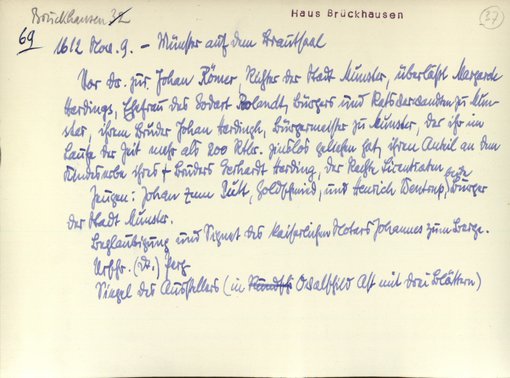 Brückhausen 32 Haus Brückhausen 37
69 1612 Nov. 9. – Münster auf dem Brautsaal
Vor Dr. jur. Johan Römer Richter der Stadt Münster, überläßt Margareta
Herdings, Ehefrau des Godart Bolandt, Bürgers und Ratsverwandten zu Mün-
ster, ihrem Bruder Johan Herdingh, Bürgermeister zu Münster, der ihr im
Laufe der Zeit mehr als 200 Rtlr. zinslos geliehen hat, ihren Anteil an dem
Kindeserbe ihres + Bruders Gerhardt Herding, der Rechte Licentiaten
Zeugen: Johan zum Pütt, Goldschmied, und Henrich Bentrup, beide Bürger
der Stadt Münster.
Beglaubigung und Signet des kaiserlichen Notars Johannes zum Berge.
Urschr. (Dt.) Perg
Siegel des Ausstellers (in Ovalschild Ast mit drei Blättern)